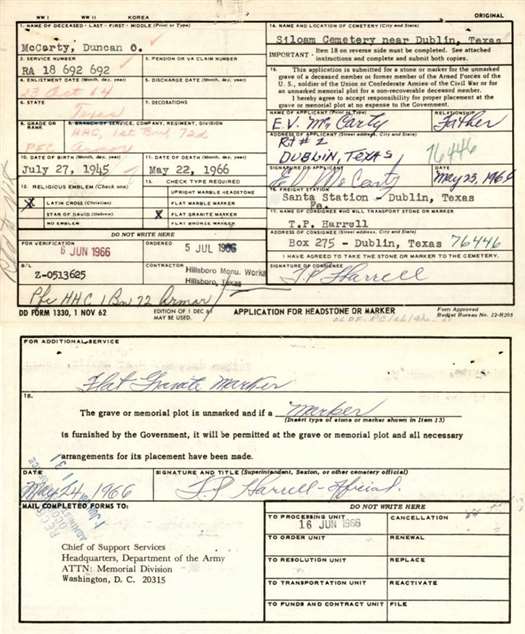 WW I WW II KOREA ORIGINAL
1. NAME OF DECEASED - LAST - FIRST - MIDDLE (Print or Type)
McCarty, Duncan O.
14. NAME AND LOCATION OF CEMETERY (City and State)
Siloam Cemetery near Dublin, Texas
2. SERVICE NUMBER
RA 18 692 692
3. PENSION OR VA CLAIM NUMBER
IMPORTANT - Item 18 on reverse side must be completed. See attached instructions and complete and submit both copies.
4. ENLISTMENT DATE (Month, day, year)
13 Oct 64
5. DISCHARGE DATE (Month, day, year)
15. This application is submitted for a stone or marker for the unmarked grave of a deceased member or former member of the Armed Forces of the U.S., soldier of the Union or Confederate Armies of the Civil War or for an unmarked memorial plot for a non-recoverable deceased member.
I hereby agree to accept responsibility for proper placement at the grave or memorial plot at no expense to the Government.
6. STATE
Texas
7. DECORATIONS
8. GRADE OR RANK
PFC
9. BRANCH OF SERVICE, COMPANY, REGIMENT, DIVISION
HHC, 1st Bn, 72d
Army
NAME OF APPLICANT (Print or Type)
E.V. McCarty
RELATIONSHIP
Father
ADDRESS OF APPLICANT (Street address, City and State)
Rt # 2
DUBLIN, TEXAS 76446
10. DATE OF BIRTH (Month, day, year)
July 27, 1945
11. DATE OF DEATH (Month, day, year)
May 22, 1966
SIGNATURE OF APPLICANT
DATE
12. RELIGIOUS EMBLEM (Check one)
X LATIN CROSS (Christian)
STAR OF DAVID (Hebrew)
NO EMBLEM
13. CHECK TYPE REQUIRED
UPRIGHT MARBLE HEADSTONE
FLAT MARBLE MARKER
X FLAT GRANITE MARKER
FLAT BRONZE MARKER
16. FREIGHT STATION
Santa Station - Dublin, Texas
17. NAME OF CONSIGNEE WHO WILL TRANSPORT STONE OR MARKER
T.P. Harrell
DO NOT WRITE HERE
ADDRESS OF CONSIGNEE (Street address, City and State)
Box 275 - Dublin, Texas 76446
FOR VERIFICATION
6 JUN 1966
ORDERED
5 JUL 1966
I HAVE AGREED TO TAKE THE STONE OR MARKER TO THE CEMETERY.
B/L
Z-0513625
CONTRACTOR
Hillsboro Monu. Works
Hillsboro, Texas
SIGNATURE OF CONSIGNEE
T P Harrell
Pfc HHC 1 Bn 72 Armor
DD FORM 1330, 1 NOV 62
EDITION OF 1 DEC
MAY BE USED.
APPLICATION FOR HEADSTONE OR MARKER
Form Approved
Budget Bureau No. 22-R205
FOR ADDITIONAL SERVICE
Flat Granite Marker
18.
The grave or memorial plot is unmarked and if a Marker
(Insert type of stone or marker shown in Item 13)
is furnished by the Government, it will be permitted at the grave or memorial plot and all necessary
arrangements for its placement have been made.
DATE
May 24, 1966
SIGNATURE AND TITLE (Superintendent, Sexton, or other cemetery official)
T P Harrell
MAIL COMPLETED FORMS TO:
DO NOT WRITE HERE
Chief of Support Services
Headquarters, Department of the Army
ATTN: Memorial Division
Washington, D. C. 20315
TO PROCESSING UNIT
16 JUN 1966
CANCELLATION
TO ORDER UNIT
RENEWAL
TO RESOLUTION UNIT
REPLACE
TO TRANSPORTATION UNIT
REACTIVATE
TO FUNDS AND CONTRACT UNIT
FILE